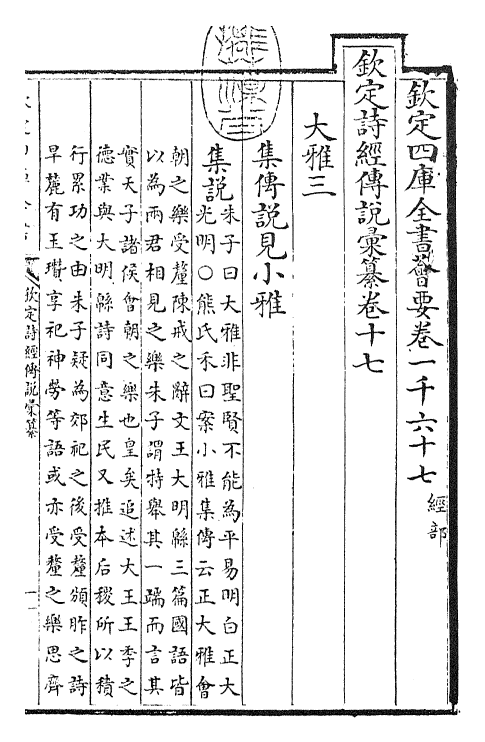 欽定四庫全書薈要卷一千六十七
經部
欽定詩經傳說彙纂卷十七
大雅三
集傳說見小雅
集說
朱子曰大雅非聖賢不能為平易明白正大
光明○熊氏禾曰案小雅集傳云正大雅會
朝之樂受釐陳戒之辭文王大明緜三篇國語皆
以為兩君相見之樂朱子謂特舉其一端而言其
實天子諸侯會朝之樂也皇矣追述大王王季之
德業與大明緜詩同意生民又推本后稷所以積
行累功之由朱子疑為郊祀之後受釐頒胙之詩
旱麓有玉瓚享祀神勞等語或亦受釐之樂思齊
欽定詩經傳說彙纂
一